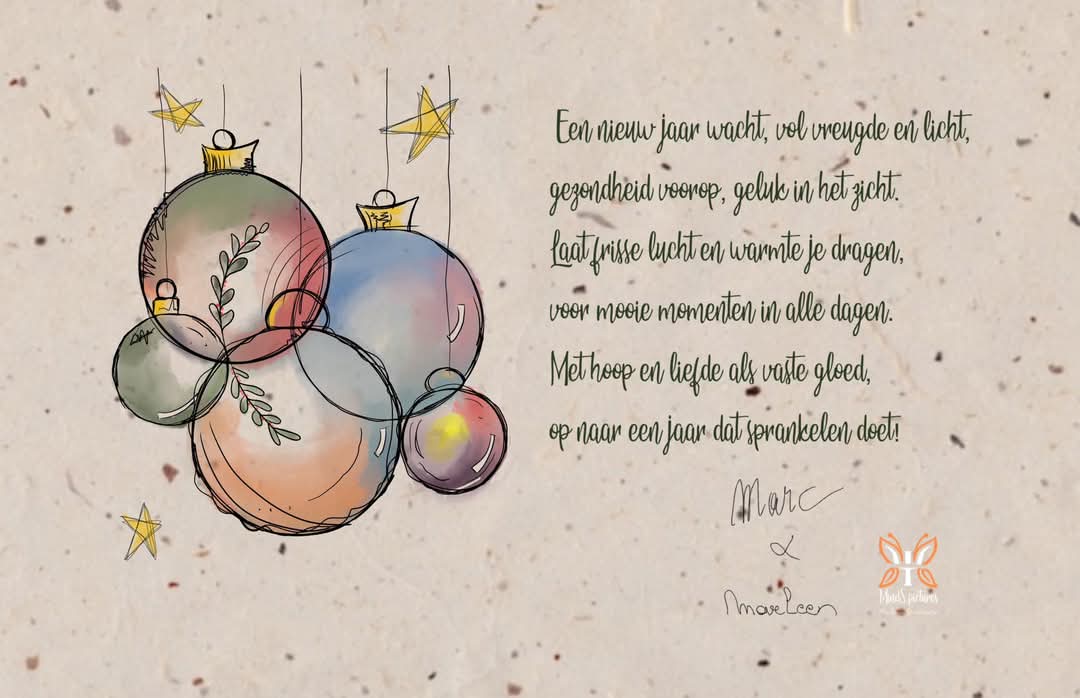 Een nieuw jaar wacht, vol vreugde en licht,
gezondheid voorop, geluk in het zicht.
Laat frisse lucht en warmte je dragen,
voor mooie momenten in alle dagen.
Met hoop en liefde als vaste gloed,
op naar een jaar dat sprankelen doet!
Marc
&
Marleen
MindS pictures